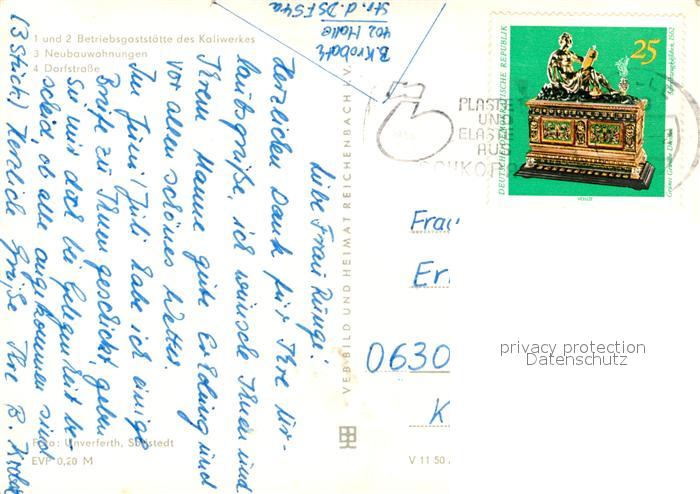 1 und 2 Betriebsgaststätte des Kaliwerkes
3 Neubauwohnungen
4 Dorfstraße
B. Krobatz
402 Halle
Str. d. DSF 54a
Liebe Frau Runge!
Herzlichen Dank für Ihre Ur-
laubsgrüße, ich wünsche Ihnen und
Ihrem Manne gute Erholung und
vor allem schönes Wetter.
Im Juni/Juli habe ich einige
Briefe zu Ihnen geschickt, geben
Sie mir doch bei Gelegenheit be-
scheid, ob alle angekommen sind
(3 Stück) Herzliche Grüße Ihre B. Krobatz
Foto: Unverferth, Sollstedt
EVP 0,20 M
VEB BILD UND HEIMAT REICHENBACH I. V.
V 11 50
PLASTE
UND
ELASTE
AUS
SCHKOPAU
DEUTSCHE DEMOKRATISCHE REPUBLIK
25
Grünes Gewölbe Dresden
Frau
Er
0630
K
privacy protection
Datenschutz